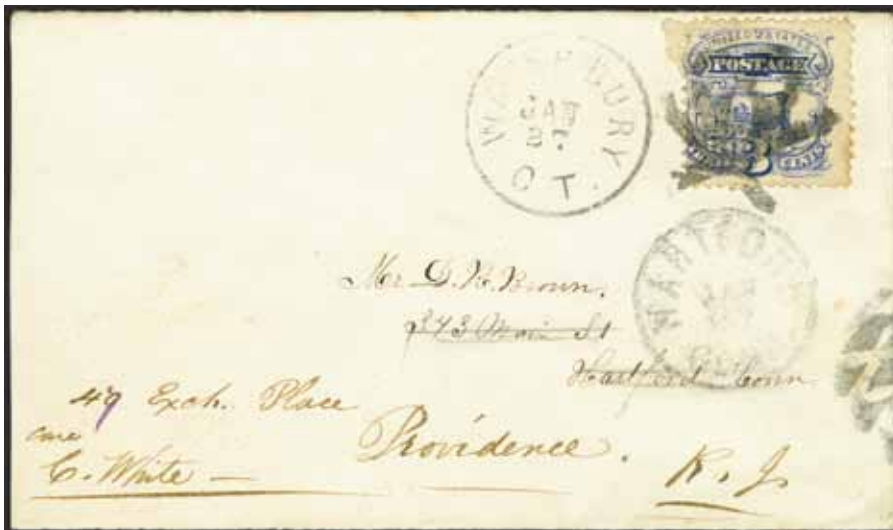 WATERBURY
JAN
27
CT.
UNITED STATES
POSTAGE
3
HARTFORD
Mr D. H. Brown.
343 Main St
Hartford Conn
49 Exch. Place
care
C. White —
Providence.
R. I.